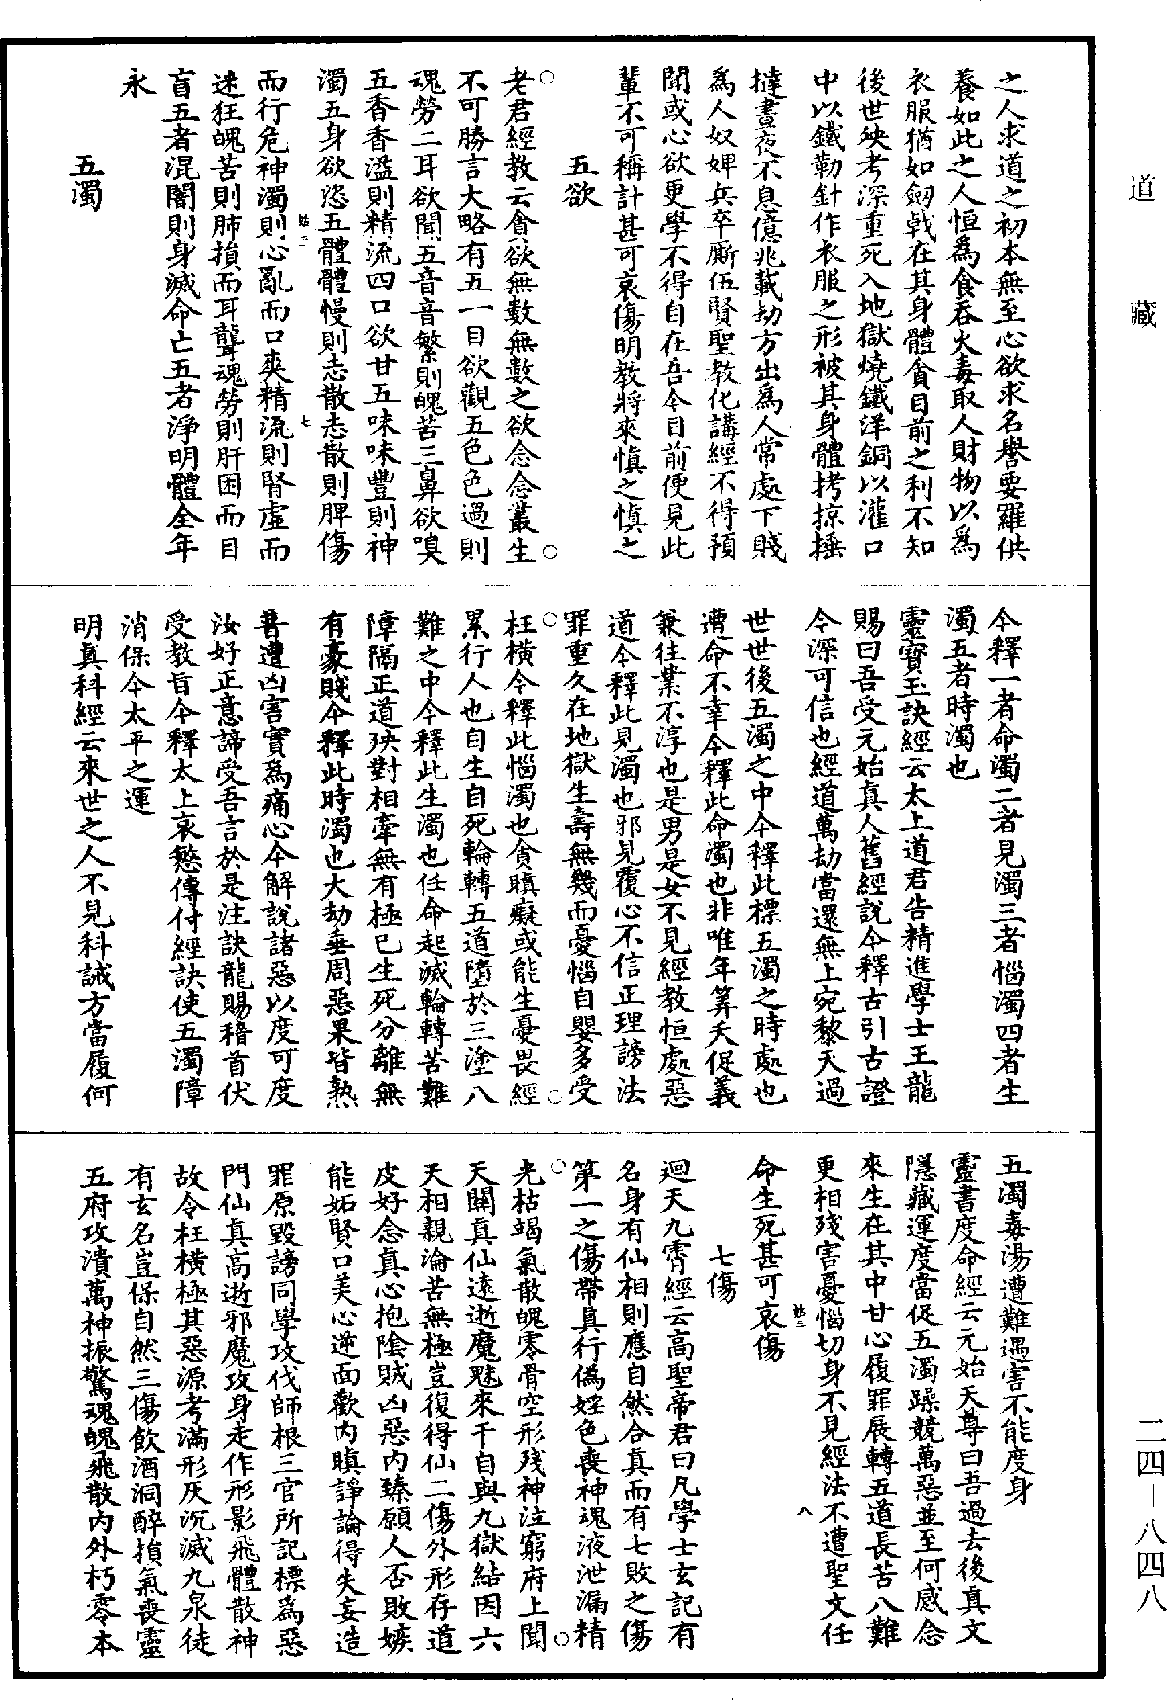 之人求道之初本無至心欲求名譽要羅供
養如此之人恒為食吞火毒取人財物以為
衣服猶如劒戟在其身體貪目前之利不知
後世殃考深重死入地獄燒鐵洋銅以灌口
中以鐵勒針作衣服之形被其身體拷掠捶
撻晝夜不息億兆載劫方出為人常處下賤
為人奴婢兵卒廝伍賢聖教化講經不得預
聞或心欲更學不得自在吾今目前便見此
輩不可稱計甚可哀傷明教將來慎之慎之
五欲
老君經教云貪欲無數無數之欲念念叢生
不可勝言大略有五一目欲觀五色色過則
魂勞二耳欲聞五音音繁則魄苦三鼻欲嗅
五香香溢則精流四口欲甘五味味豐則神
濁五身欲恣五體體慢則志散志散則脾傷
而行危神濁則心亂而口爽精流則腎虛而
迷狂魄苦則肺損而耳聾魂勞則肝困而目
盲五者混闇則身滅命亡五者淨明體全年
永
五濁
今釋一者命濁二者見濁三者惱濁四者生
濁五者時濁也
靈寶玉訣經云太上道君告精進學士王龍
賜曰吾受元始真人舊經說今釋古引古證
今深可信也經道萬劫當還無上宛黎天過
世世後五濁之中今釋此標五濁之時處也
遭命不幸今釋此命濁也非唯年筭夭促義
兼往業不淳也是男是女不見經教恒處惡
道今釋此見濁也邪見覆心不信正理謗法
罪重久在地獄生壽無幾而憂惱自嬰多受
枉橫今釋此惱濁也貪瞋癡或能生憂畏經
累行人也自生自死輪轉五道墮於三塗八
難之中今釋此生濁也任命起滅輪轉苦難
障隔正道殃對相牽無有極已生死分離無
有豪賤今釋此時濁也大劫垂周惡果皆熟
普遭凶害實為痛心今解說諸惡以度可度
汝好正意諦受吾言於是注訣龍賜稽首伏
受教旨今釋太上哀愍傳付經訣使五濁障
消保今太平之運
明真科經云來世之人不見科誡方當履何
五濁毒湯遭難遇害不能度身
靈書度命經云元始天尊曰吾過去後真文
隱藏運度當促五濁躁競萬惡並至何感念
來生在其中甘心履罪展轉五道長苦八難
更相殘害憂惱切身不見經法不遭聖文任
命生死甚可哀傷
七傷
迴天九霄經云高聖帝君曰凡學士玄記有
名身有仙相則應自然合真而有七敗之傷
第一之傷帶真行偽婬色喪神魂液泄漏精
光枯竭氣散魄零骨空形殘神泣窮府上聞
天關真仙遠逝魔魅來干自與九獄結因六
天相親淪苦無極豈復得仙二傷外形存道
皮好念真心抱陰賊凶惡內臻願人否敗嫉
能妬賢口美心逆面歡內瞋諍論得失妄造
罪原毀謗同學攻伐師根三官所記標為惡
門仙真高逝邪魔攻身走作形影飛體散神
故令枉橫極其惡源考滿形灰沉滅九泉徒
有玄名豈保自然三傷飲酒洞醉損氣喪靈
五府攻潰萬神振驚魂魄飛散內外朽零本
道
藏
二四—八四八
七
八